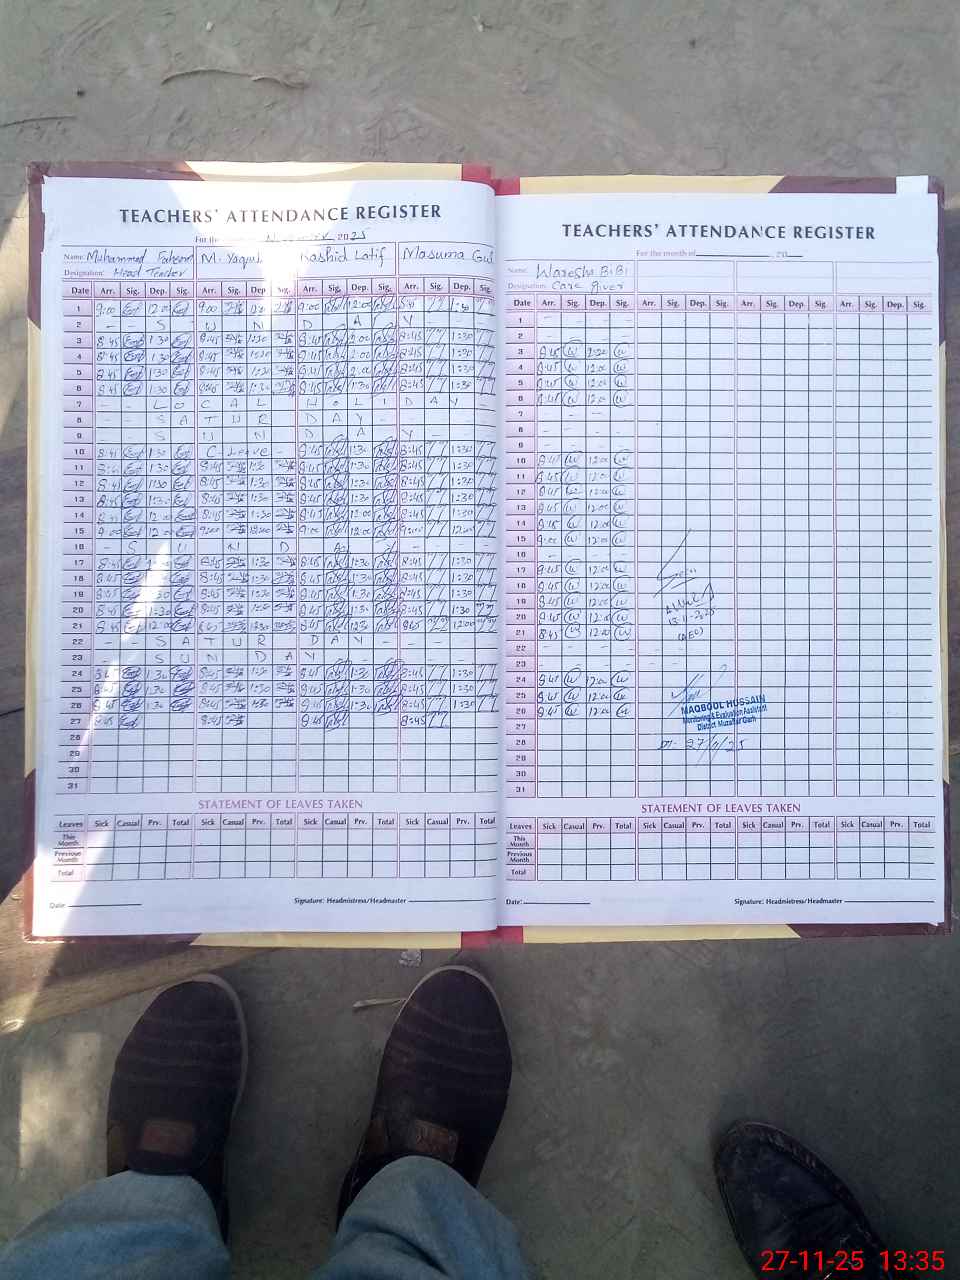 TEACHERS' ATTENDANCE REGISTER
For the November 2025
Name: Muhammad Faheem M. Yaqub Rashid Latif Masuma Gul
Designation: Head Teacher
Date Arr. Sig. Dep. Sig. Arr. Sig. Dep. Sig. Arr. Sig. Dep. Sig. Arr. Sig. Dep. Sig.
1 9:00 12:00 9:00 9:00 12:00
2 - - S U N D A Y
3 8:45 1:30 8:45 1:30 8:45 2:00 8:45 1:30
4 8:45 1:30 8:45 1:30 8:45 2:00 8:45 1:30
5 8:45 1:30 8:45 1:30 8:45 2:00 8:45 1:30
6 8:45 1:30 8:45 1:30 8:45 1:30 8:45 1:30
7 - - L O C A L H O L I D A Y -
8 S A T U R D A Y - -
9 - - S U N D A Y
10 8:45 1:30 C - Leave - 8:45 1:30 8:45 1:30
11 1:30 8:45 1:30 8:45 1:30 8:45 1:30
12 8:45 1:30 8:45 1:30 8:45 1:30 8:45 1:30
13 8:45 1:30 8:45 1:30 8:45 1:30 8:45 1:30
14 8:45 12:00 8:45 8:45 12:00 8:45
15 9:00 12:00 9:00 12:00 9:00 12:00 9:00 12:00
16 - S U N D A Y
17 8:45 8:45 1:30 8:45 1:30 8:45 1:30
18 8:45 8:45 1:30 8:45 1:30 8:45 1:30
19 8:45 8:45 1:30 8:45 1:30 8:45 1:30
20 8:45 1:30 8:45 8:45 1:30 8:45 1:30
21 8:45 12:00 8:45 8:45 8:45 12:00
22 - - S A T U R D A Y - - -
23 - - S U N D A Y
24 8:45 1:30 8:45 1:30 8:45 1:30 8:45 1:30
25 8:45 1:30 8:45 1:30 8:45 1:30 8:45 1:30
26 8:45 1:30 8:45 1:30 8:45 1:30 8:45 1:30
27 8:45 8:45 8:45 8:45
28
29
30
31
STATEMENT OF LEAVES TAKEN
Leaves Sick Casual Prv. Total Sick Casual Prv. Total Sick Casual Prv. Total Sick Casual Prv. Total
This Month
Previous Month
Total
Date: Signature: Headmistress/Headmaster
TEACHERS' ATTENDANCE REGISTER
For the month of 20
Name: Waresha BiBi
Designation: Care giver
Date Arr. Sig. Dep. Sig. Arr. Sig. Dep. Sig. Arr. Sig. Dep. Sig. Arr. Sig. Dep. Sig.
1 - - - -
2 - - -
3 8:45 12:00
4 8:45 12:00
5 8:45 12:00
6 8:45 12:00
7 - - -
8 - - -
9 - - -
10 8:45 12:00
11 8:45 12:00
12 8:45 12:00
13 8:45 12:00
14 8:45 12:00
15 9:00 12:00
16 - - -
17 8:45 12:00
18 8:45 12:00
19 8:45 12:00 Seen
20 8:45 12:00 13-11-2025
21 8:45 12:00 (AEO)
22 - - - -
23 - - - -
24 8:45 12:00
25 8:45 12:00 Seen
26 8:45 12:00 MAQBOOL HUSSAIN
27 Monitoring & Evaluation Assistant
District Muzaffar Garh
28 Dt: 27/11/25
29
30
31
STATEMENT OF LEAVES TAKEN
Leaves Sick Casual Prv. Total Sick Casual Prv. Total Sick Casual Prv. Total Sick Casual Prv. Total
This Month
Previous Month
Total
Date: Signature: Headmistress/Headmaster
27-11-25 13:35